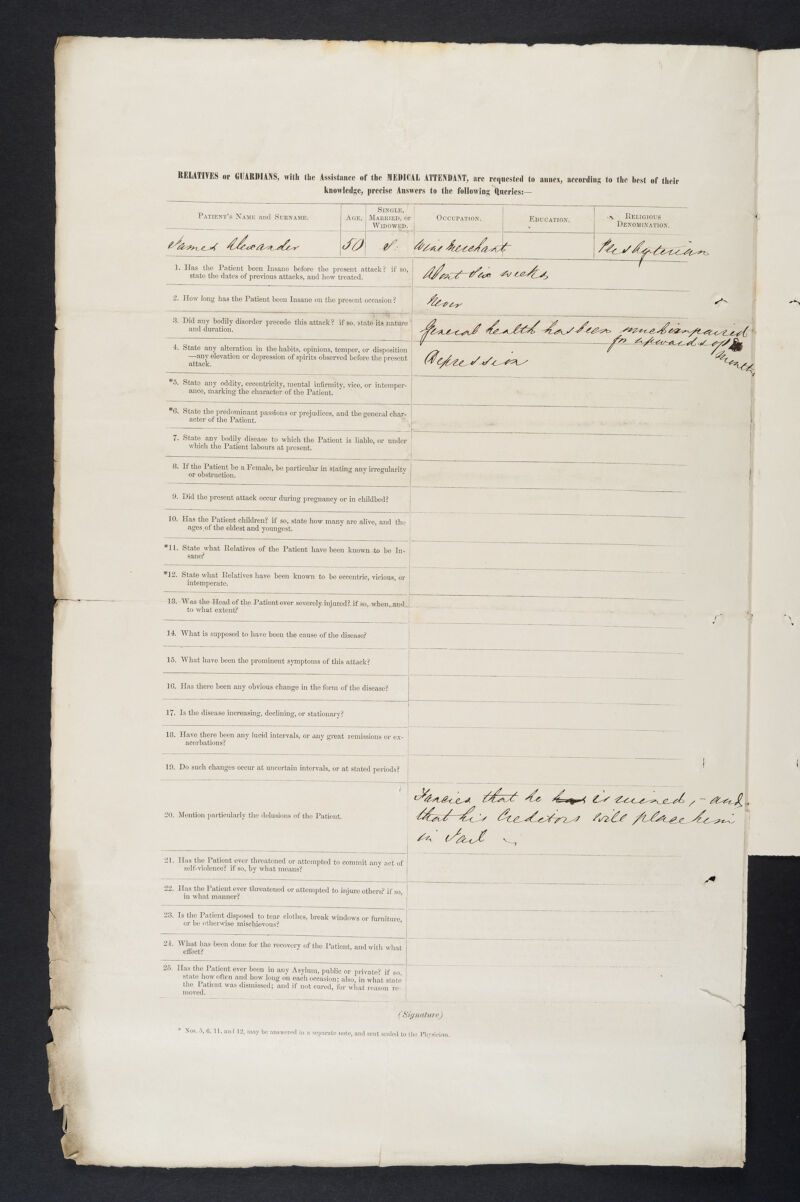 RELATIVES or GUARDIANS, with the Assistance of the MEDICAL ATTENDANT, are requested to annex, according to the best of their
knowledge, precise Answers to the following Queries:—
PATIENT'S NAME and SURNAME. AGE. SINGLE, MARRIED, or WIDOWED. OCCUPATION. EDUCATION. RELIGIOUS DENOMINATION.
James Alexander 50 S. Wine Merchant Presbyterian
1. Has the Patient been Insane before the present attack? if so,
state the dates of previous attacks, and how treated.
About Six weeks
2. How long has the Patient been Insane on the present occasion?
Never
3. Did any bodily disorder precede this attack? if so, state its nature
and duration.
General health has been much impaired
for upwards of
Months
4. State any alteration in the habits, opinions, temper, or disposition
—any elevation or depression of spirits observed before the present
attack.
Depression
*5. State any oddity, eccentricity, mental infirmity, vice, or intemper-
ance, marking the character of the Patient.
*6. State the predominant passions or prejudices, and the general char-
acter of the Patient.
7. State any bodily disease to which the Patient is liable, or under
which the Patient labours at present.
8. If the Patient be a Female, be particular in stating any irregularity
or obstruction.
9. Did the present attack occur during pregnancy or in childbed?
10. Has the Patient children? if so, state how many are alive, and the
ages of the eldest and youngest.
*11. State what Relatives of the Patient have been known to be In-
sane?
*12. State what Relatives have been known to be eccentric, vicious, or
intemperate.
13. Was the Head of the Patient ever severely injured? if so, when, and
to what extent?
14. What is supposed to have been the cause of the disease?
15. What have been the prominent symptoms of this attack?
16. Has there been any obvious change in the form of the disease?
17. Is the disease increasing, declining, or stationary?
18. Have there been any lucid intervals, or any great remissions or ex-
acerbations?
19. Do such changes occur at uncertain intervals, or at stated periods?
20. Mention particularly the delusions of the Patient.
Fancies that he has is ruined, - and
that his Creditors will place him
in Jail
21. Has the Patient ever threatened or attempted to commit any act of
self-violence? if so, by what means?
22. Has the Patient ever threatened or attempted to injure others? if so,
in what manner?
23. Is the Patient disposed to tear clothes, break windows or furniture,
or be otherwise mischievous?
24. What has been done for the recovery of the Patient, and with what
effect?
25. Has the Patient ever been in any Asylum, public or private? if so,
state how often and how long on each occasion; also, in what state
the Patient was dismissed; and if not cured, for what reason re-
moved.
(Signature)
* Nos. 5, 6, 11, and 12, may be answered in a separate note, and sent sealed to the Physician.